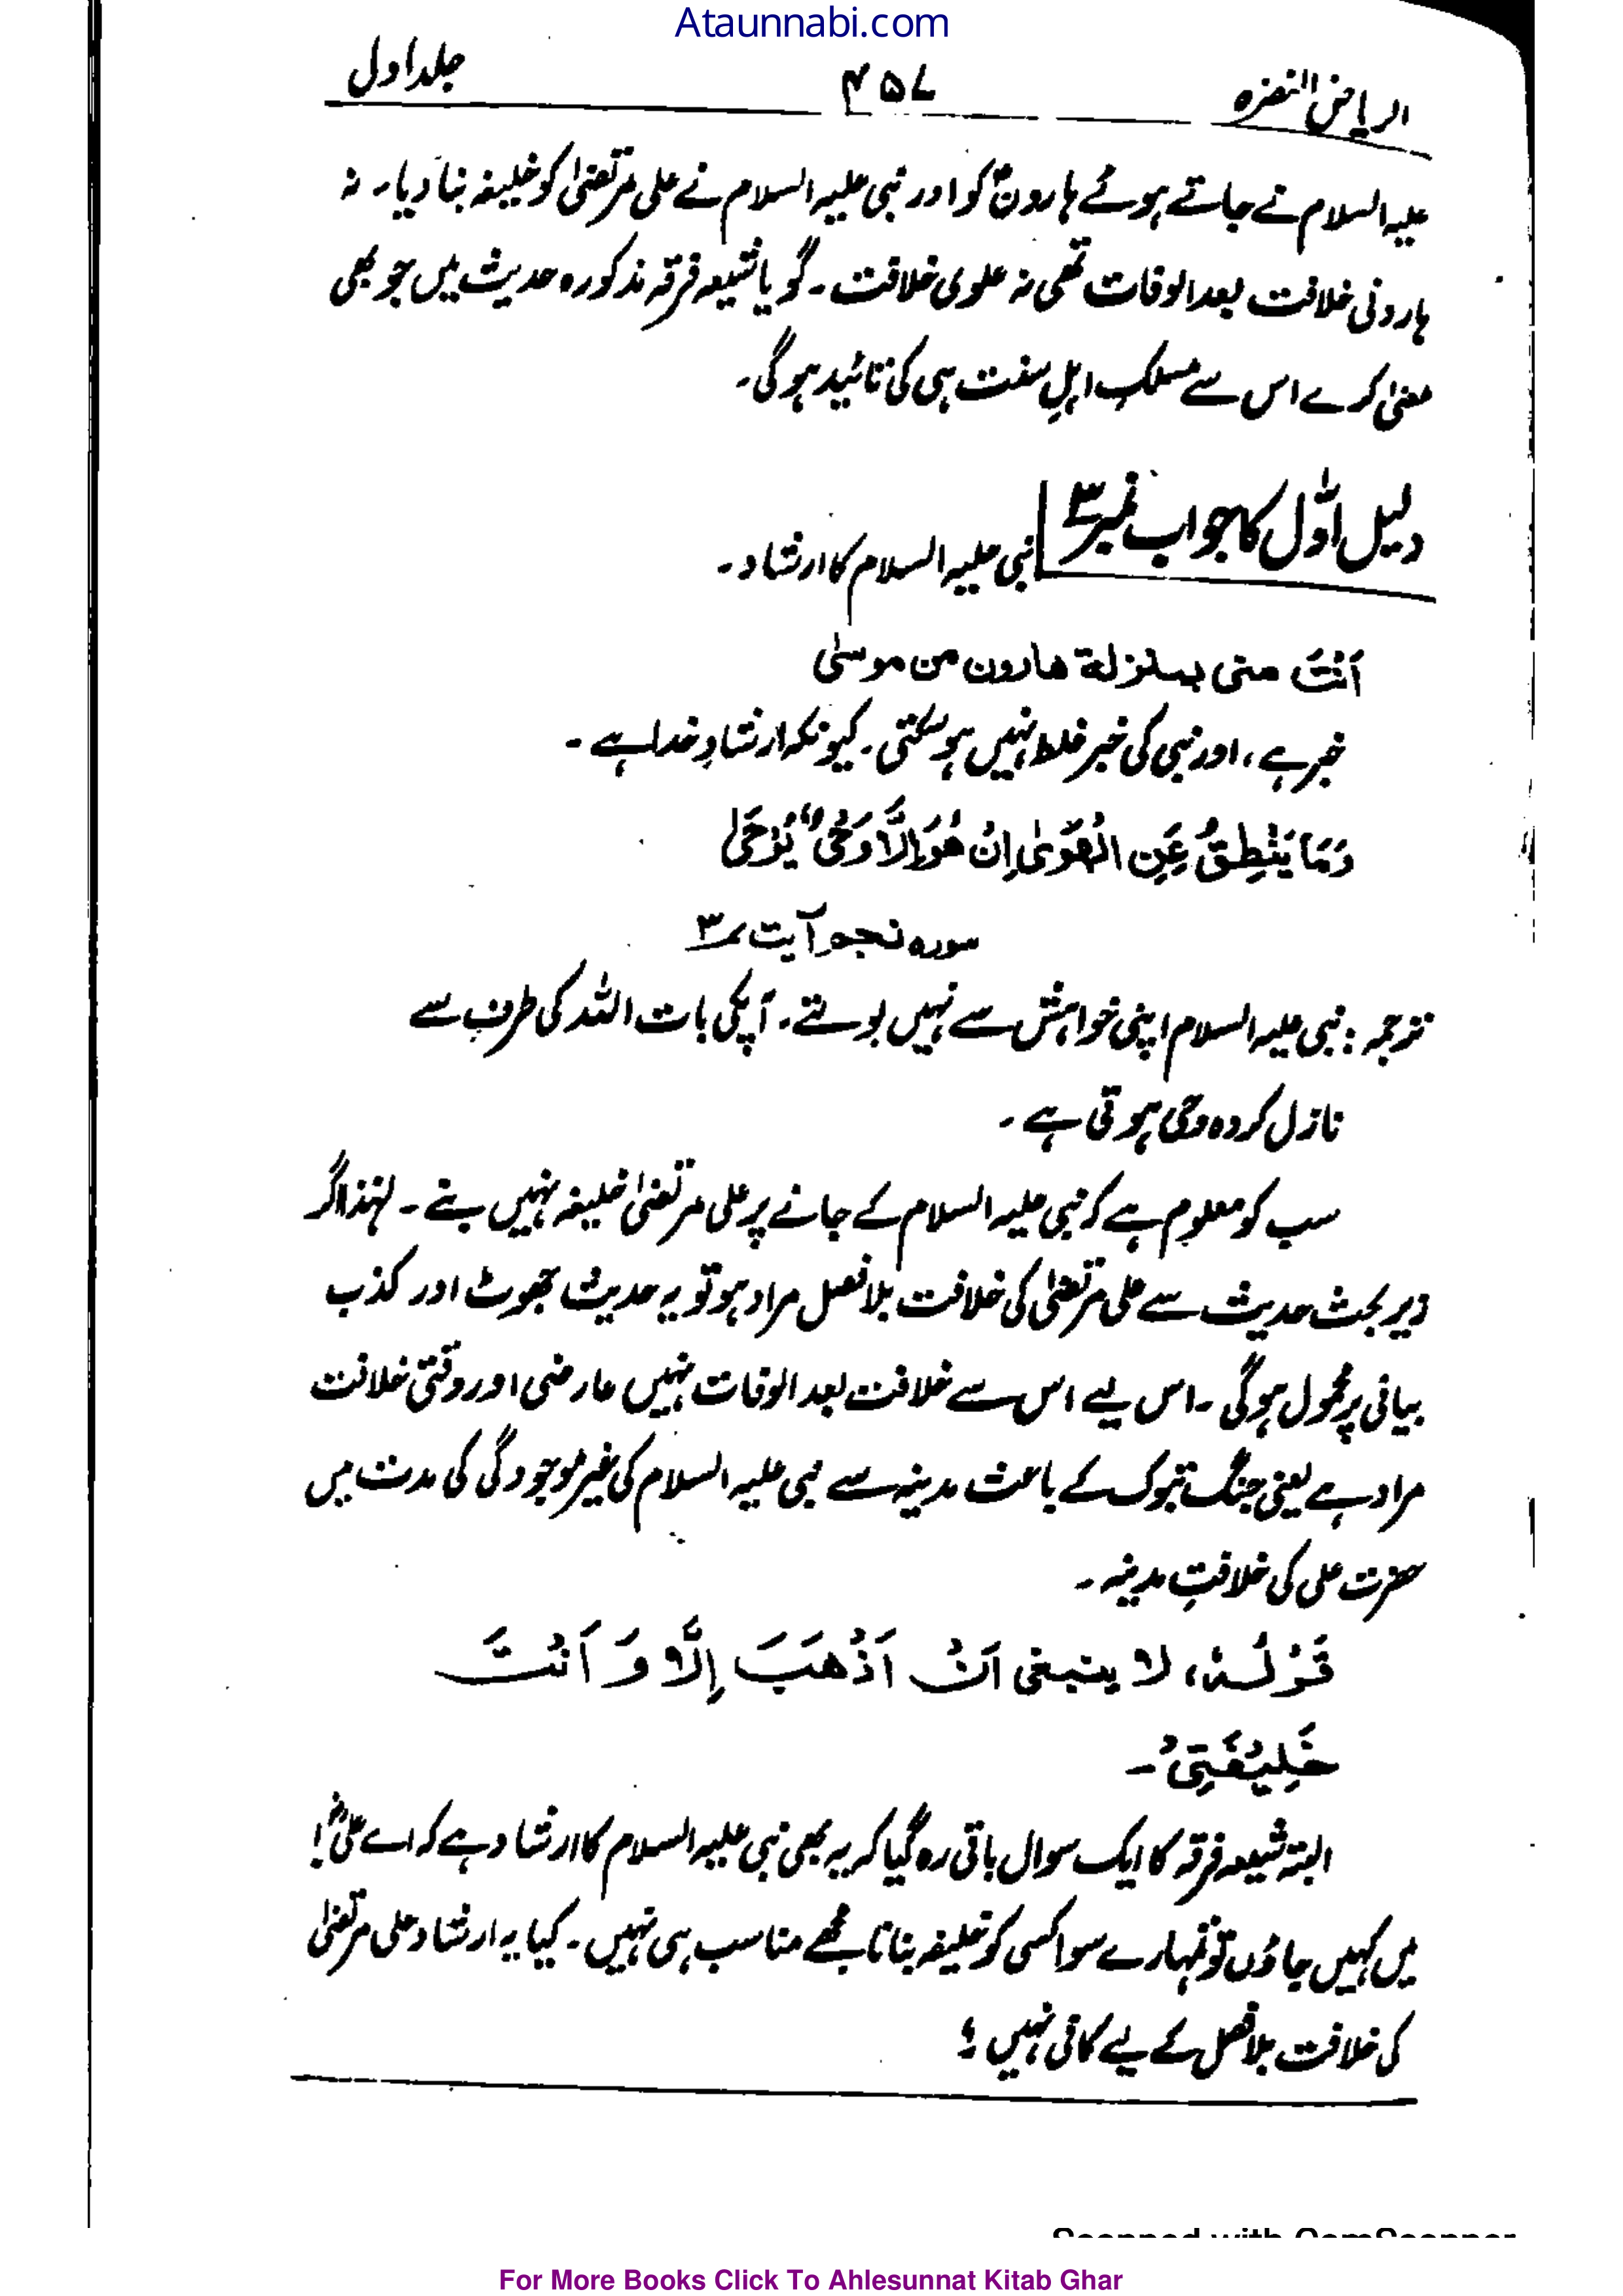 Ataunnabi.com
الریاض النضرہ ۴۵۷ جلد اول
علیہ السلام نے جاتے ہوئے ہارونؑ کو اور نبی علیہ السلام نے علی مرتضیٰ کو خلیفہ بنا دیا۔ نہ
ہارونی خلافت بعد الوفات تھی نہ علوی خلافت۔ گویا شیعہ فرقہ مذکورہ حدیث میں جو بھی
معنیٰ کرے اس سے مسلکِ اہلِ سنت ہی کی تائید ہوگی۔
دلیل اوّل کا جواب نمبر ۳ نبی علیہ السلام کا ارشاد۔
اَنْتَ منی بمنزلۃ ھارون من موسیٰ
خبر ہے، اور نبی کی خبر غلط نہیں ہو سکتی۔ کیونکہ ارشادِ خدا ہے۔
وَمَا یَنْطِقُ عَنِ الْھَوٰی اِنْ ھُوَ اِلَّا وَحْیٌ یُّوْحٰی
سورہ نجم آیت ۳
ترجمہ: نبی علیہ السلام اپنی خواہش سے نہیں بولتے۔ آپکی بات اللہ کی طرف سے
نازل کردہ وحی ہوتی ہے۔
سب کو معلوم ہے کہ نبی علیہ السلام کے جانے پر علی مرتضیٰ خلیفہ نہیں بنے۔ لہٰذا اگر
زیر بحث حدیث سے علی مرتضیٰ کی خلافت بلا فصل مراد ہو تو یہ حدیث جھوٹ اور کذب
بیانی پر محمول ہوگی۔ اس لیے اس سے خلافت بعد الوفات نہیں عارضی اور وقتی خلافت
مراد ہے یعنی جنگ تبوک کے باعث مدینہ سے نبی علیہ السلام کی غیر موجودگی کی مدت میں
حضرت علی کی خلافتِ مدینہ۔
قَوْلُہٗ، لا ینبغی اَنْ اَذْھَبَ اِلَّا وَ اَنْتَ
خَلِیْفَتِیْ۔
البتہ شیعہ فرقہ کا ایک سوال باقی رہ گیا کہ یہ بھی نبی علیہ السلام کا ارشاد ہے کہ اے علیؓ!
میں کہیں جاؤں تو تمہارے سوا کسی کو خلیفہ بنانا مجھے مناسب ہی نہیں۔ کیا یہ ارشاد علی مرتضیٰ
کی خلافت بلا فصل کے لیے کافی نہیں؟
Scanned with CamScanner
For More Books Click To Ahlesunnat Kitab Ghar